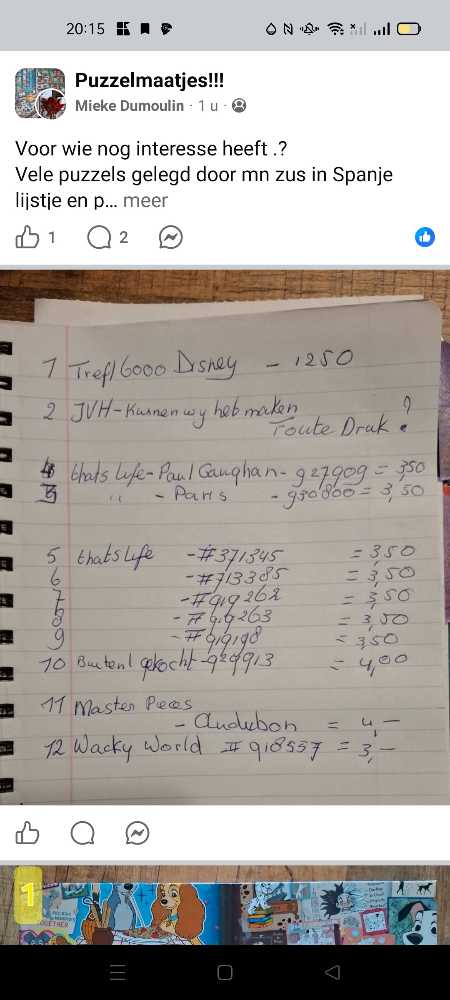 20:15
Puzzelmaatjes!!!
Mieke Dumoulin · 1 u ·
Voor wie nog interesse heeft .?
Vele puzzels gelegd door mn zus in Spanje
lijstje en p... meer
1 2
1 Trefl 6000 Disney - 1250
2 JVH - heb maken
Toute Druk ?
4 thats life - Paul Gaughan - 927909 = 3,50
3 " - Paris - 930800 = 3,50
5 thats life - #371345 = 3,50
6 - #713385 = 3,50
7 - #919262 = 3,50
8 - #919263 = 3,50
9 - #919198 = 3,50
10 gekocht - 929913 = 4,00
11 Master Pieces
- Audubon = 4,-
12 Wacky World # 918557 = 3,-
1
TOGETHER